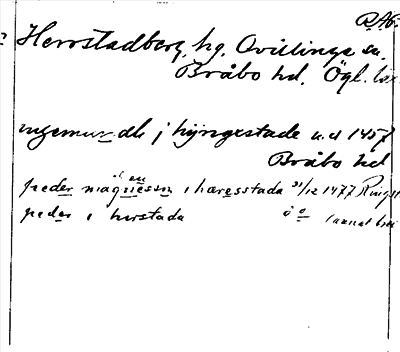 RA6:
? Herrstadberg, hg, Qvillinge sn,
Bråbo hd, Ögl. län
ingemundh j hyngestade u.d 1457
Bråbo hd
peder magnesson i haresstada 31/12 1477
peder i herstada ö o (annat brev